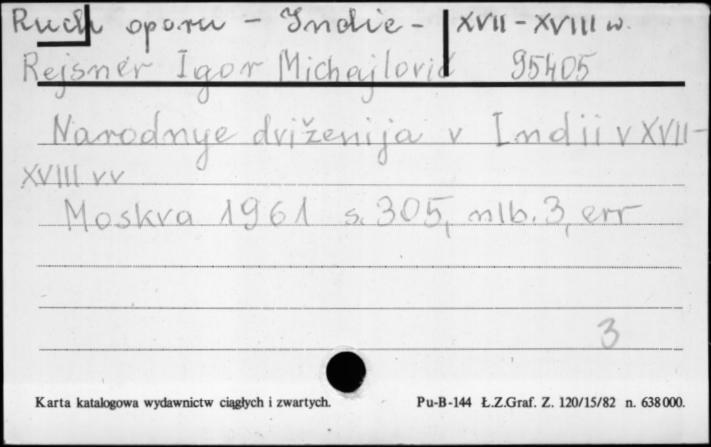 Ruch oporu - Indie - XVII - XVIII w.
Rejsner Igor Michajlovič 95405
Narodnye dviženija v Indii v XVII-
XVIII vv
Moskva 1961 s. 305, mlb. 3, err
3
Karta katalogowa wydawnictw ciągłych i zwartych. Pu-B-144 Ł.Z.Graf. Z. 120/15/82 n. 638000.